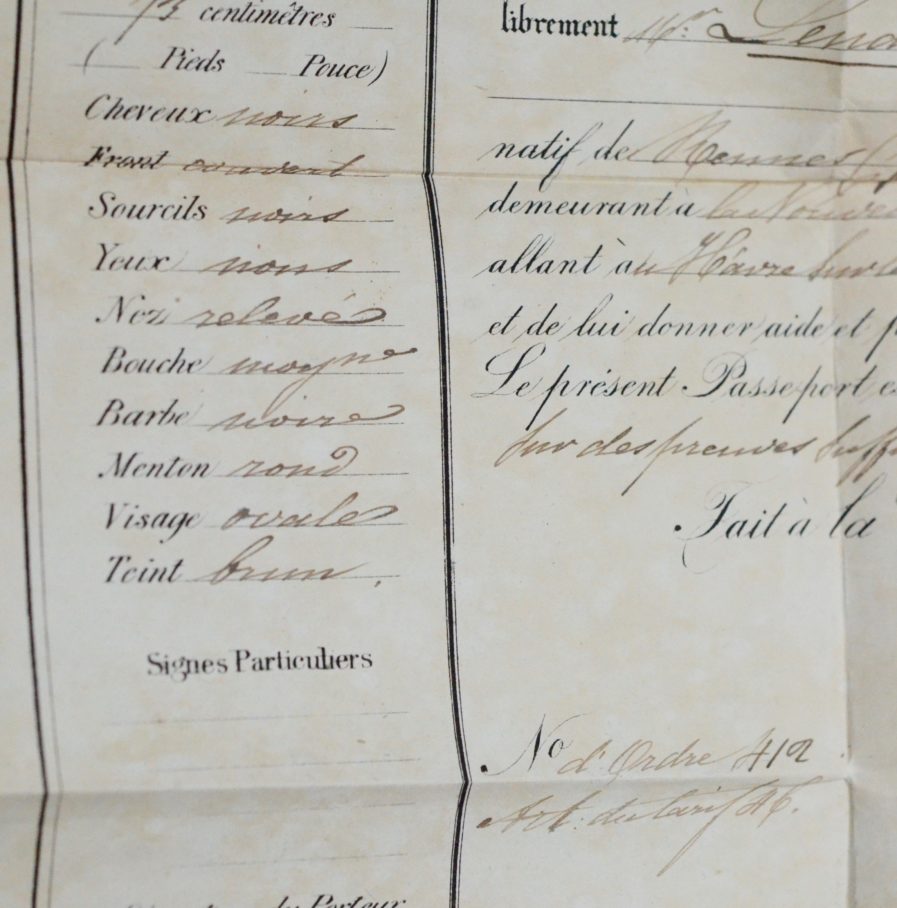 73 centimètres
( Pieds Pouce)
Cheveux noirs
Front couvert
Sourcils noirs
Yeux noirs
Nez relevé
Bouche moyne
Barbe noire
Menton rond
Visage ovale
Teint brun.
Signes Particuliers
du Porteur
librement Mr:
natif de Rennes
demeurant à la Nouve
allant à au Hâvre sur le
et de lui donner aide et p
Le présent Passeport es
sur des preuves suffi
Fait à la
No d'Ordre 412
Art: du tarif 46.